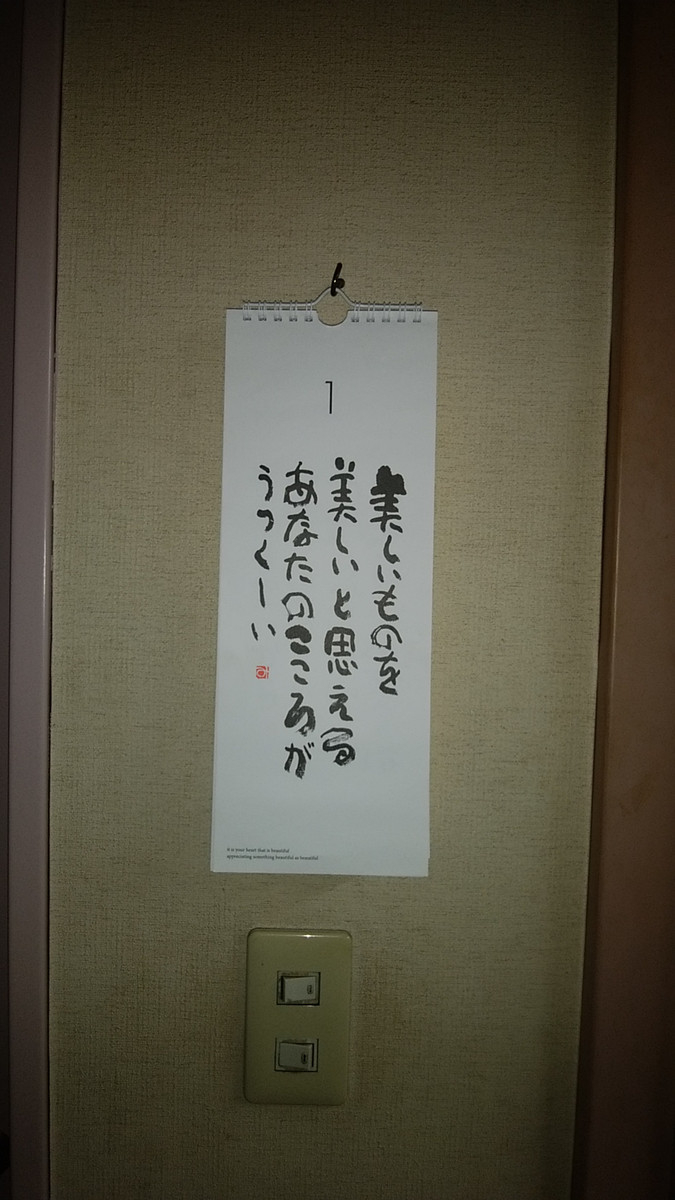 1
美しいものを
美しいと思える
あなたのこころが
うつくしい
it is your heart that is beautiful
appreciating something beautiful as beautiful